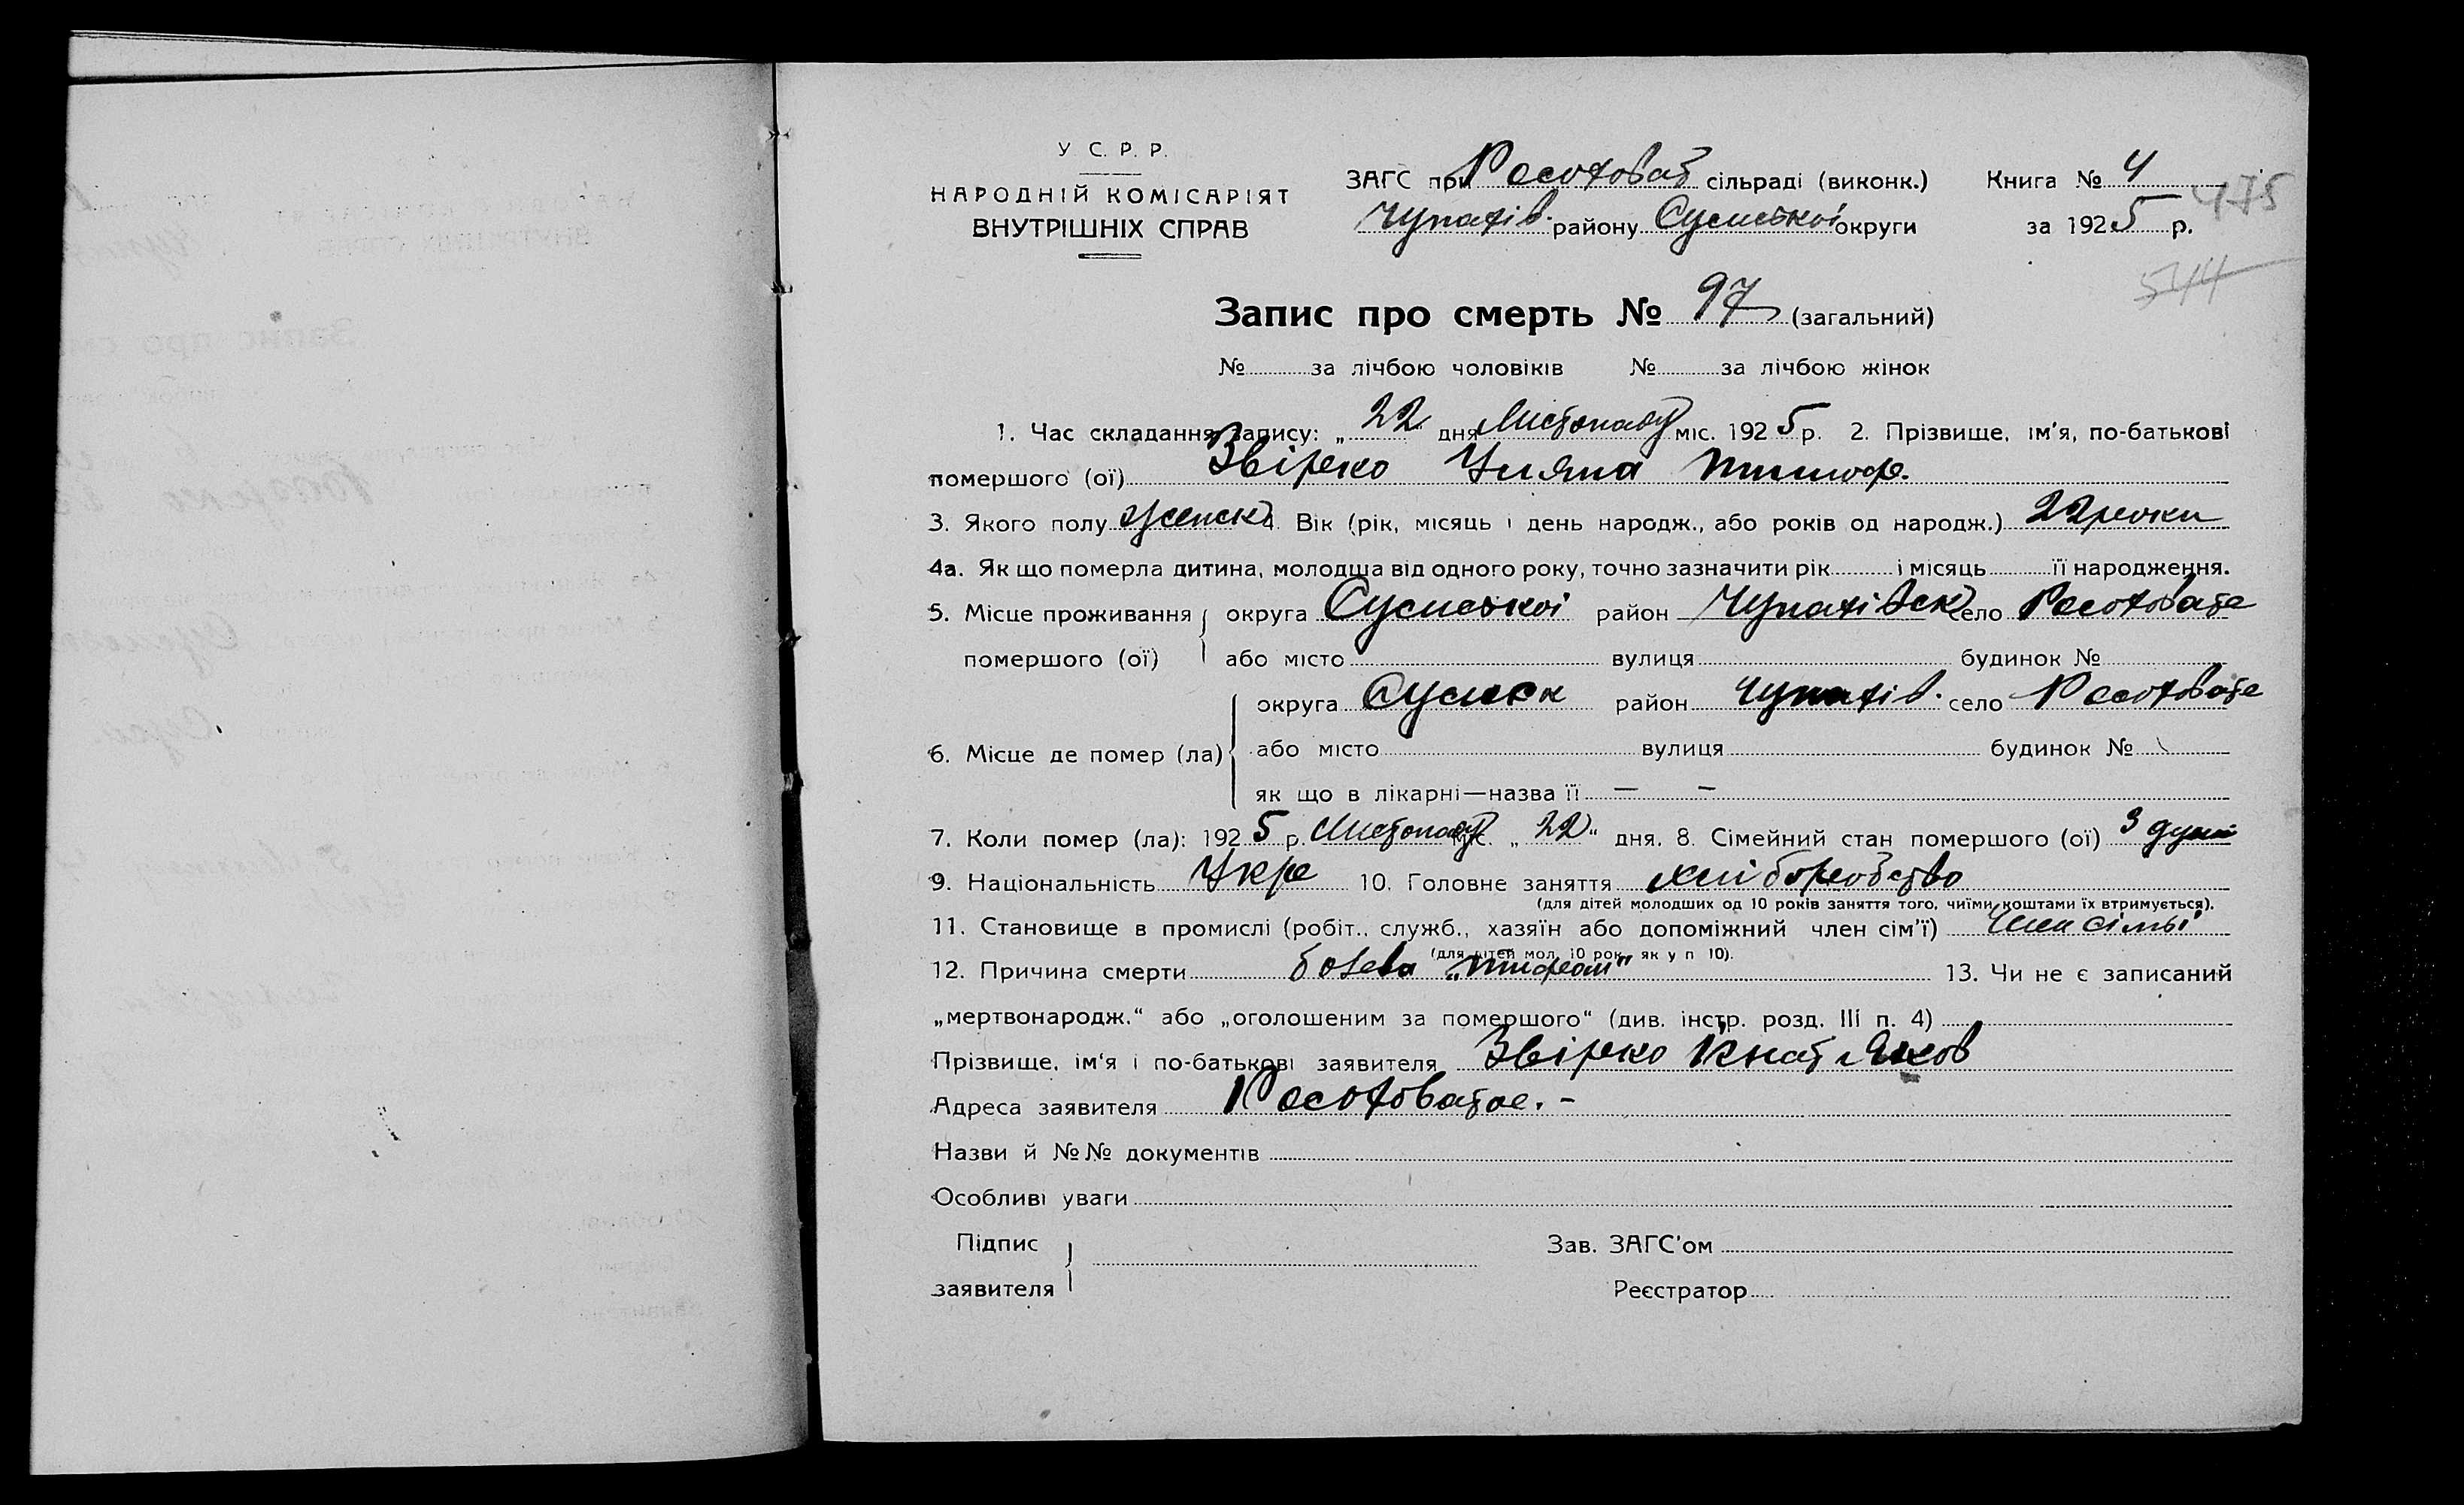 У С. Р. Р.
НАРОДНІЙ КОМІСАРІЯТ
ВНУТРІШНІХ СПРАВ
ЗАГС при Росоховат сільраді (виконк.) Книга № 4
475
Чупахів. району Сумської округи за 1925 р.
544
Запис про смерть № 97 (загальний)
№ за лічбою чоловіків № за лічбою жінок
1. Час складання запису: „ 22 " дня Листопаду міс. 1925 р. 2. Прізвище, ім'я, по-батькові
помершого (ої) Звірко Уляна Тимоф.
3. Якого полу женск. 4. Вік (рік, місяць і день народж., або років од народж.) 22 роки
4а. Як що померла дитина, молодша від одного року, точно зазначити рік і місяць її народження.
5. Місце проживання помершого (ої) округа Сумської район Чупахівск село Росоховате
або місто вулиця будинок №
6. Місце де помер (ла) округа Сумск район Чупахів. село Росоховате
або місто вулиця будинок №
як що в лікарні—назва її — —
7. Коли помер (ла): 1925 р. Листопаду міс. „ 22 " дня. 8. Сімейний стан помершого (ої) 3 душі
9. Національність Укр 10. Головне заняття хліборобство
(для дітей молодших од 10 років заняття того, чиїми коштами їх втримується).
11. Становище в промислі (робіт., служб., хазяїн або допоміжний член сім'ї) Член сімьї
(для дітей мол. 10 рок., як у п 10).
12. Причина смерти болела „тифом" 13. Чи не є записаний
„мертвонародж." або „оголошеним за помершого" (див. інстр. розд. III п. 4)
Прізвище, ім'я і по-батькові заявителя Звірко Кнат Яков
Адреса заявителя Росоховатое. -
Назви й №№ документів
Особливі уваги
Підпис заявителя
Зав. ЗАГС'ом
Реєстратор